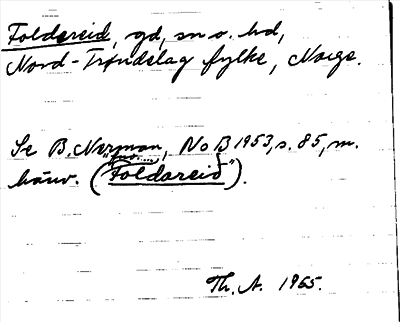 Foldereid, gd, sn o. hd,
Nord-Trøndelag fylke, Norge.
Se B. Nerman, NoB 1953, s. 85, m.
hänv. ("Foldareid").
Th. A. 1965.